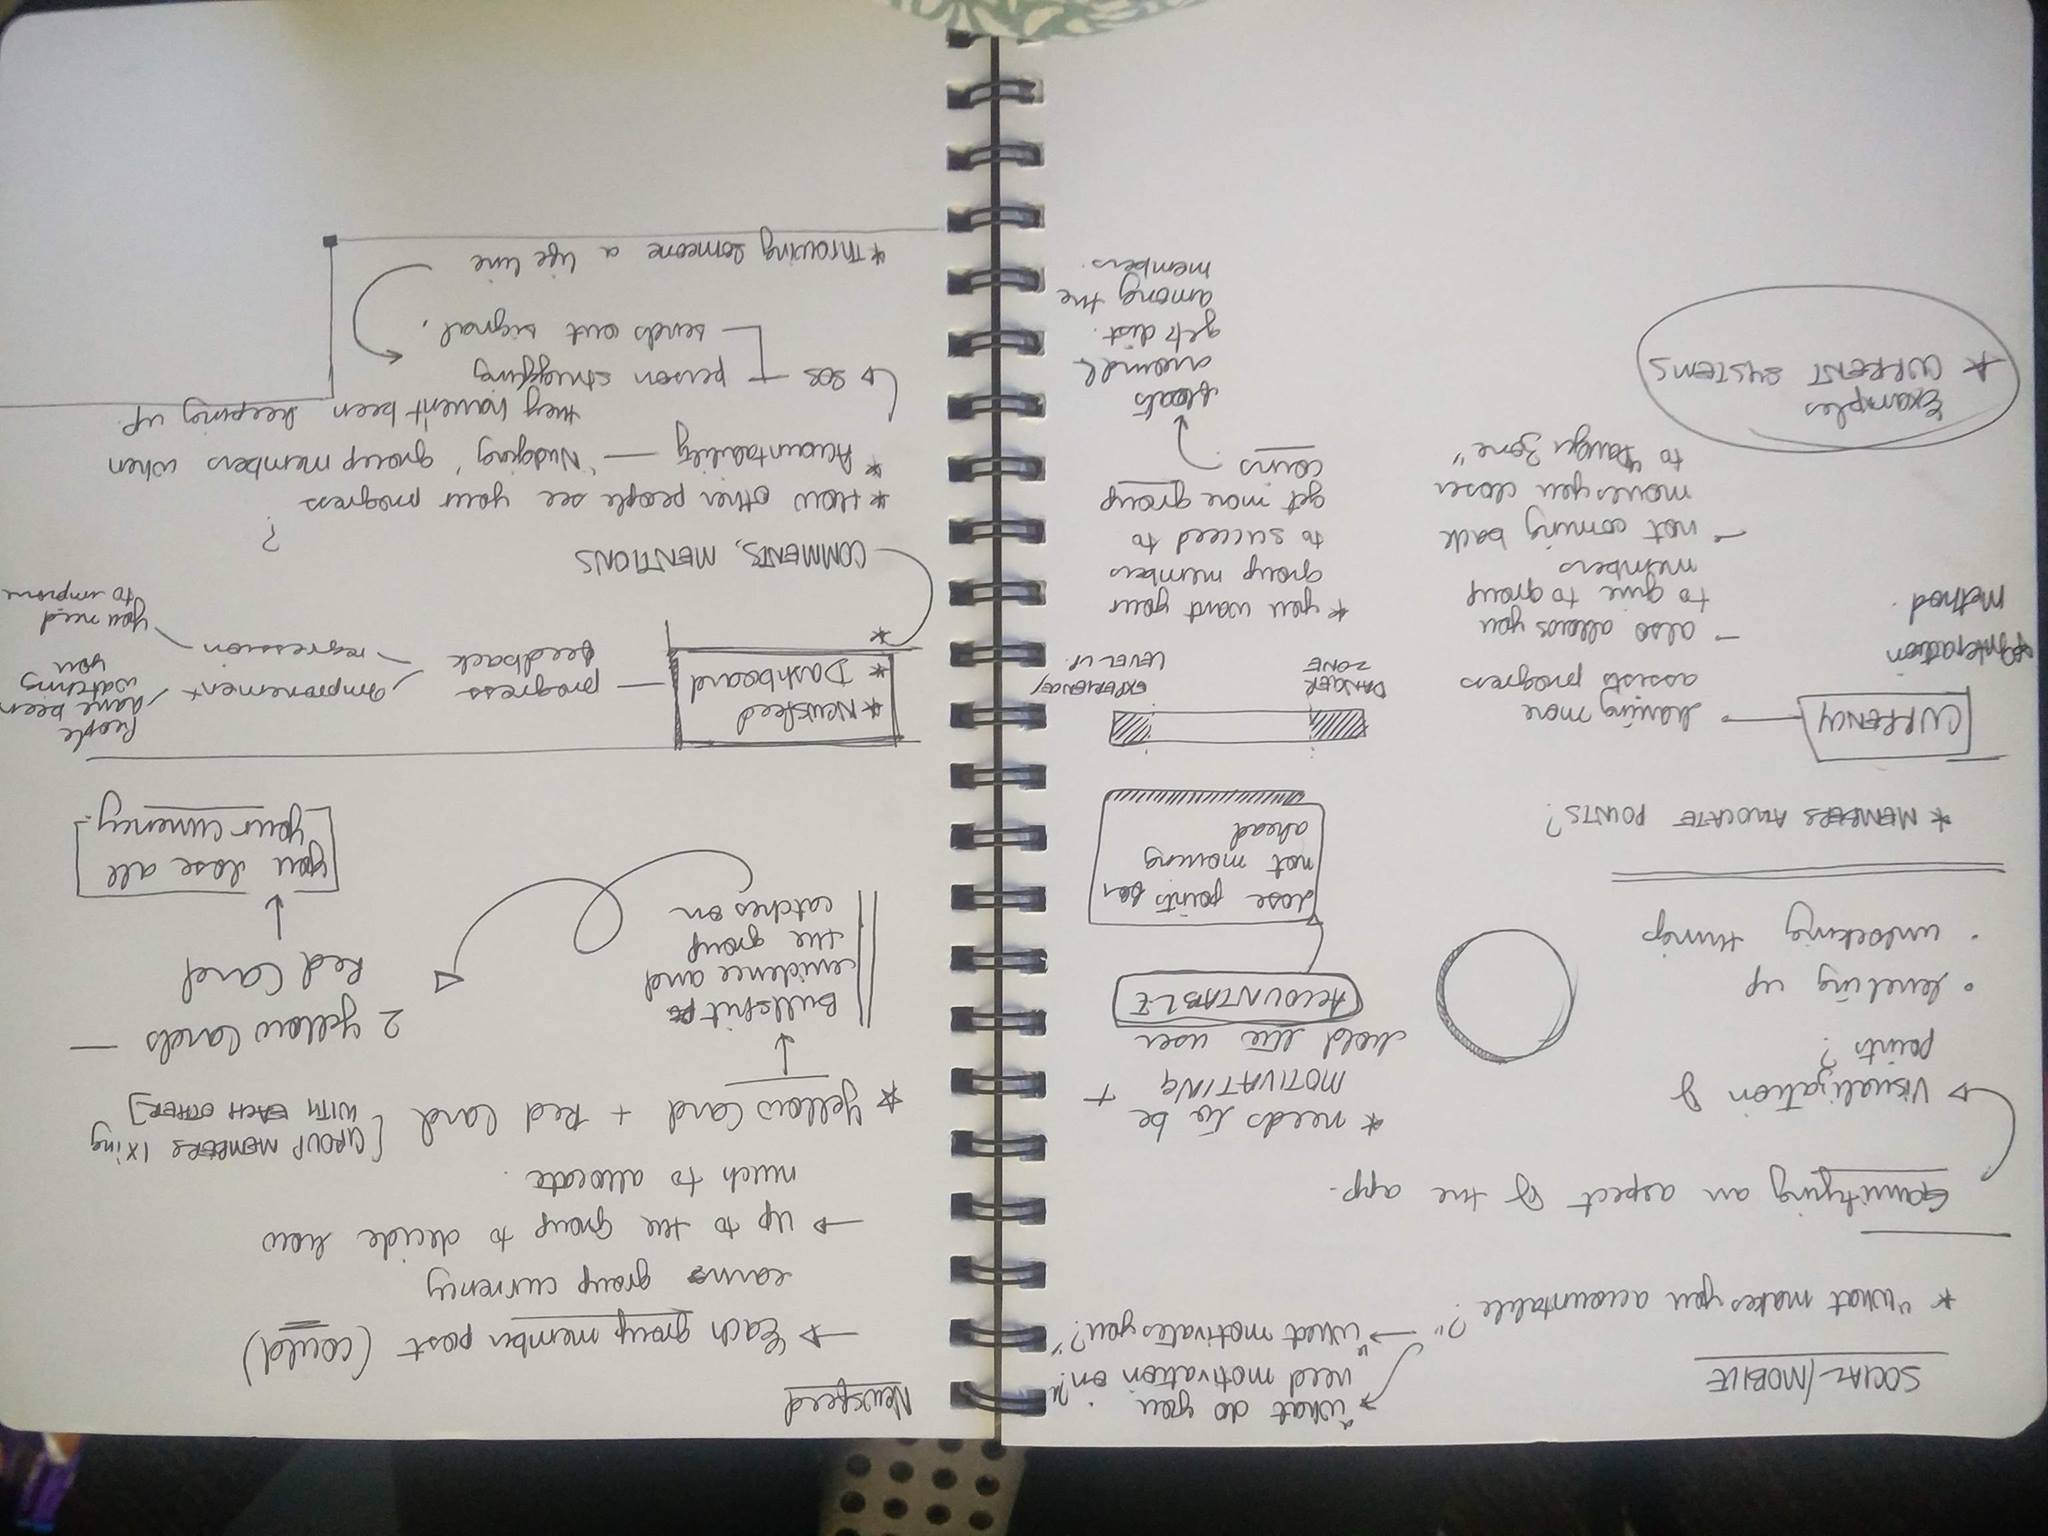 SOCIAL/MOBILE
"What do you
need motivation on?"
* "What makes you accountable?"
"What motivates you?"
Gamifying an aspect of the app.
Visualization of
points?
• leveling up
• unlocking things
* needs to be
MOTIVATING +
hold the user
ACCOUNTABLE
lose points for
not moving
ahead
* MEMBERS ALLOCATE POINTS?
CURRENCY
* Interaction
Method.
having more
assists progress
– also allows you
to give to group
members
– not coming back
moves you closer
to "Danger Zone"
DANGER
ZONE
EXPERIENCE/
LEVEL UP.
* you want your
group members
to succeed to
get more group
coins
floats
around &
gets dist.
among the
members.
Examples
* CURRENT SYSTEMS
Newsfeed
→ Each group member post (could)
earns group currency
→ Up to the group to decide how
much to allocate.
* Yellow Card + Red Card [GROUP MEMBERS IXing
WITH EACH OTHER]
Bullshit
evidence and
the group
catches on
2 Yellow Cards —
Red Card
you lose all
your currency.
* Newsfeed
* Dashboard
*
progress
feedback
improvement
regression
People
have been
watching
you
you need
to improve
COMMENTS, MENTIONS
* How other people see your progress?
* Accountability — 'Nudging' group members when
they haven't been keeping up.
SOS — person struggling
sends out signal.
* Throwing someone a life line